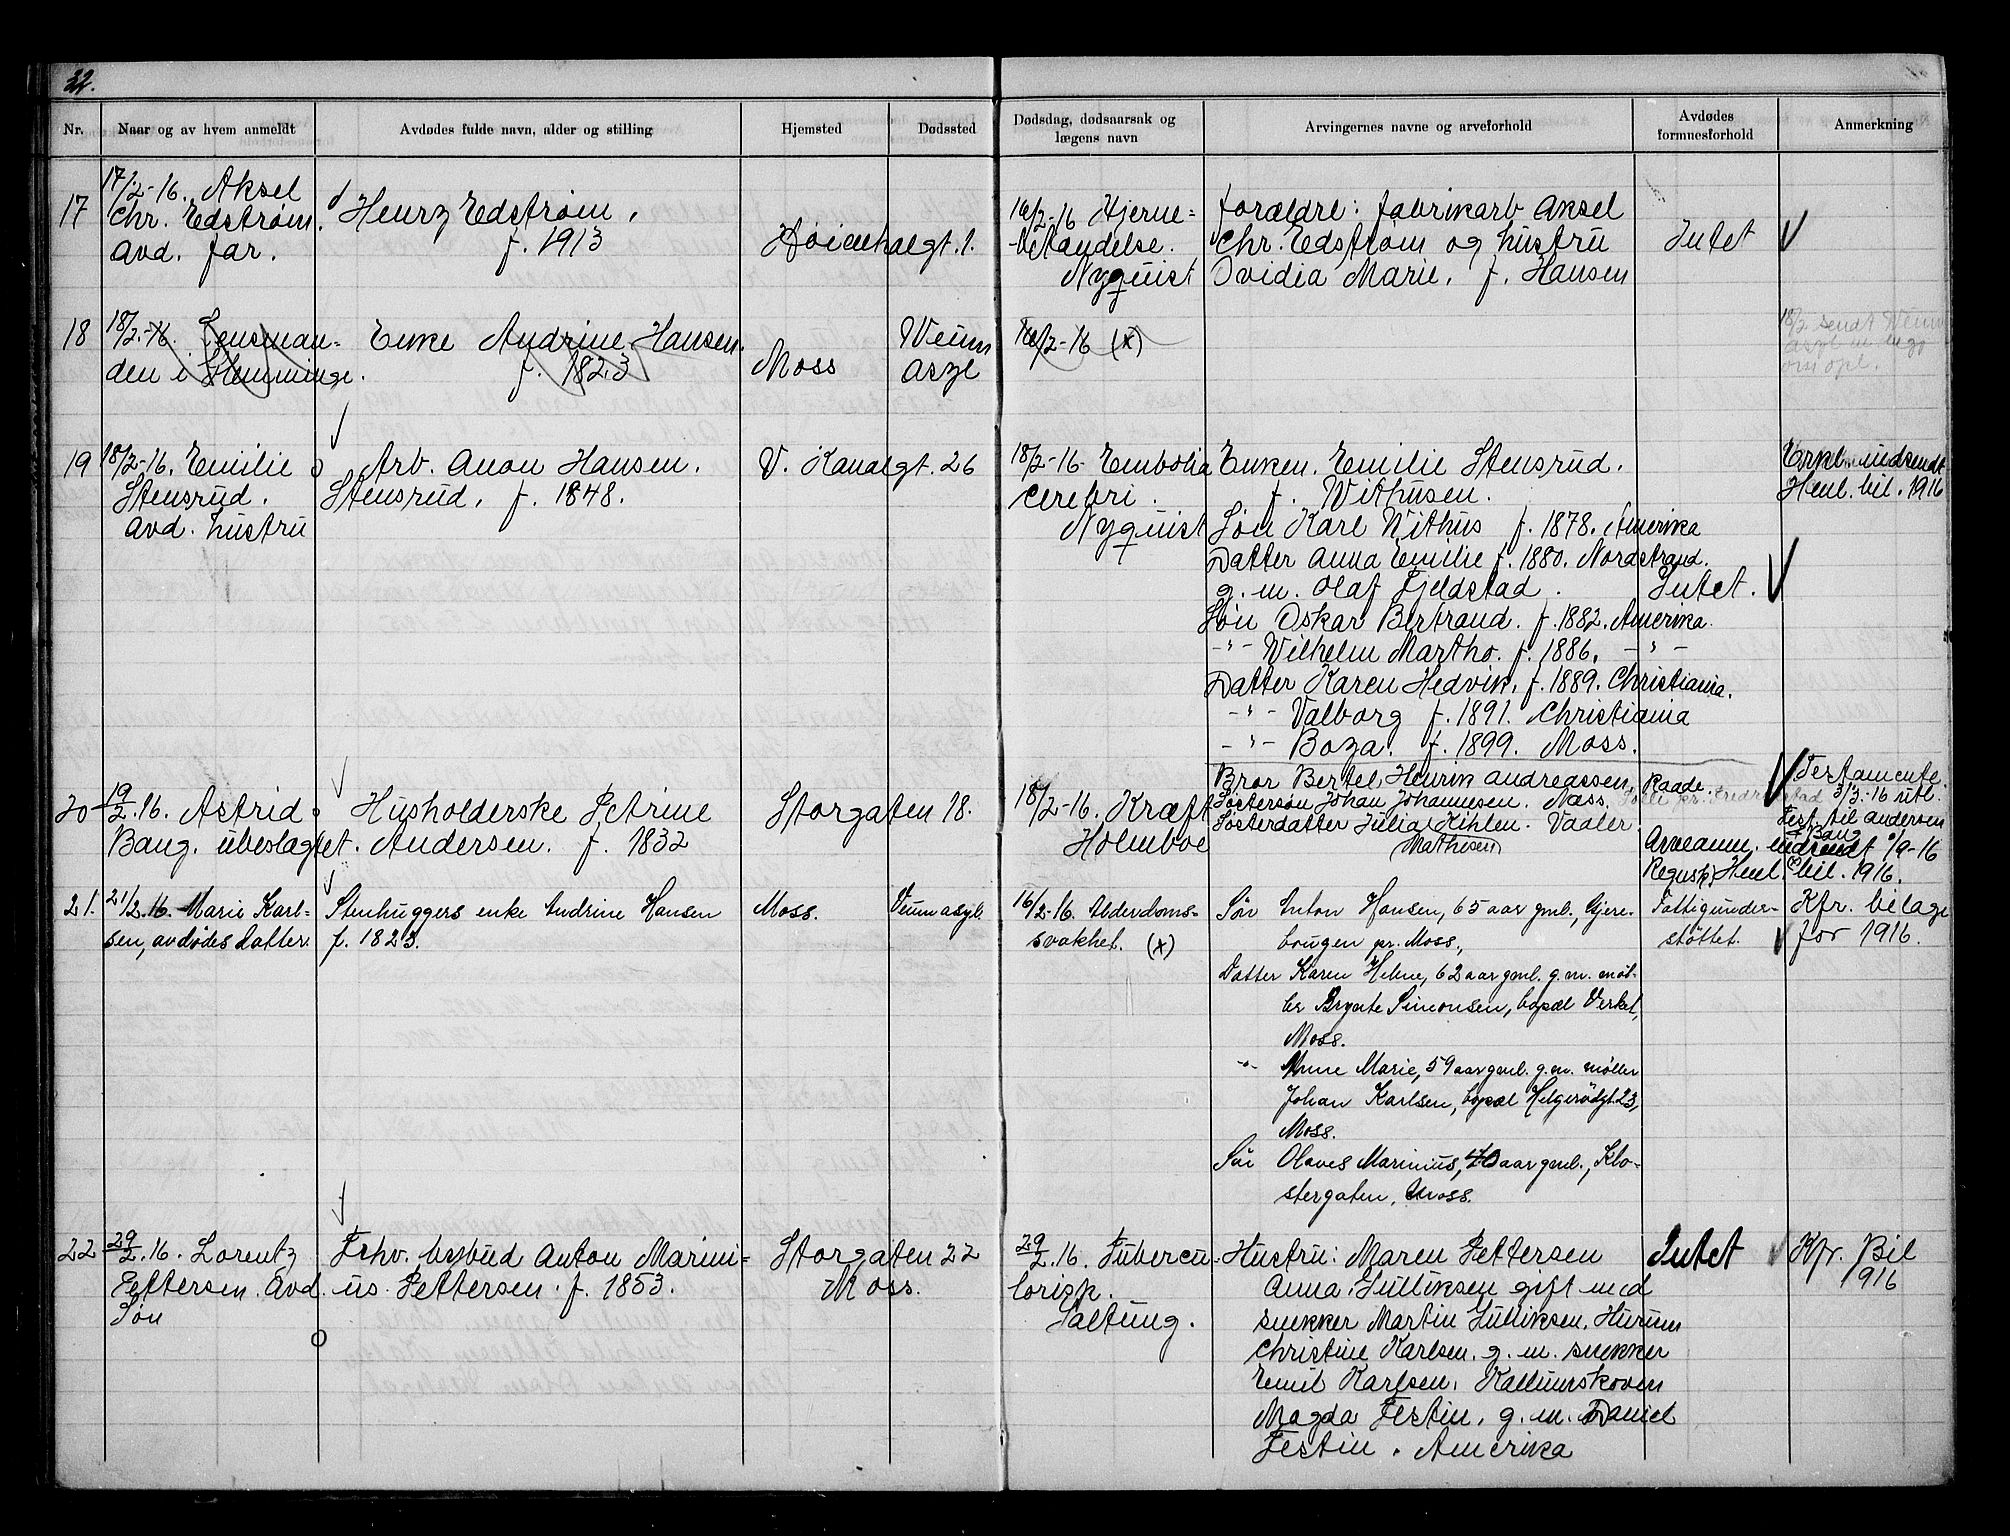 32.
Nr. Naar og av hvem anmeldt Avdødes fulde navn, alder og stilling Hjemsted Dødssted Dødsdag, dødsaarsak og lægens navn Arvingernes navne og arveforhold Avdødes formuesforhold Anmerkning
17
17/2-16. Aksel
Chr. Edstrøm.
avd. far.
Henry Edstrøm.
f. 1913
Høienhalgt. 1.
16/2-16 Hjerne-
betændelse.
Nyquist
Forældre: fabrikarb Aksel
Chr. Edstrøm og hustru
Ovidia Marie, f. Hansen
Intet
18
18/2-16. Lensman-
den i Glemminge.
Enke Andrine Hansen.
f. 1823
Moss
Veum
asyl
16/2-16 (x)
18/2 sendt Veum
asyl
19
18/2-16. Emilie
Stensrud.
avd. hustru
Arb. Anon Hansen.
Stensrud. f. 1848.
V. Kanalgt. 26
18/2-16. Embolia
cerebri.
Nyquist
Enken. Emilie Stensrud.
f. Withusen.
Søn Karl Withus f. 1878. Amerika
Datter Anna Emilie f. 1880. Nordstrand.
g. m. Olaf Fjeldstad.
Søn Oskar Bertrand. f. 1882. Amerika.
-"- Wilhelm Martho. f. 1886. -"-
Datter Karen Hedvik. f. 1889. Christiania.
-"- Valborg f. 1891. Christiania
-"- Boza. f. 1899. Moss.
Intet.
Erkl. indsendt
Henl. bil. 1916
20
19/2.16. Astrid
Bang. ubeslagtet.
Husholderske Petrine
Andersen. f. 1832
Storgaten 18.
18/2-16. Kræft
Holmboe
Bror Bertel Henrik Andreassen, Raade.
Søstersøn Johan Johannesen. Næss.
Søsterdatter Julia Kihlen. Vaaler.
(Mathisen)
Arveanm. indsendt 1/9-16
Henl. bil. 1916.
Testamente
31/3-16 utl.
Test. til Andersen
Bang
21.
21/2.16. Marie Karl-
sen, avdødes datter
Stenhuggers enke Andrine Hansen
f. 1823.
Moss.
Veum asyl.
16/2-16. Alderdoms-
svakhet. (x)
Søn Anton Hansen, 65 aar gml., Gjere-
bougen pr. Moss.,
Datter Karen Helene, 62 aar gml. g. m. møl-
ler Brynte Simonsen, bopæl Verket,
Moss.
-"- Anne Marie, 59 aar gml. g. m. møller
Johan Karlsen, bopæl Helgerødgt. 23,
Moss.
Søn Olaves Marinius, 40 aar gml., Klo-
stergaten, Moss.
Fattigunder-
støttet.
Kfr. bilage
for 1916.
22
29/2.16. Lorentz
Pettersen. Avd.
Søn
Frhv. bybud Anton Marini-
us. Pettersen. f. 1853.
Storgaten 22
Moss.
29/2.16. Tubercu-
Saltung.
Hustru: Maren Pettersen
Anna Gulliksen gift med
snekker Martin Gulliksen, Hurum
Christine Karlsen. g. m. snekker
Emil Karlsen. Kallumskoven
Magda Festin. g. m. Daniel
Festin. Amerika
Intet
Kfr. Bil
1916